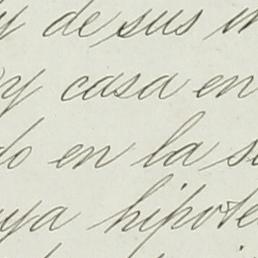 y de sus in
y casa en
do en la s
uya hipote